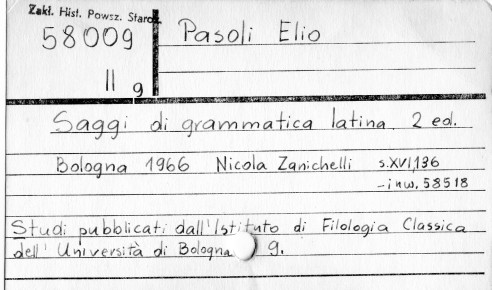 Zakł. Hist. Powsz. Staroż.
58009
Pasoli Elio
II g
Saggi di grammatica latina. 2 ed.
Bologna 1966 Nicola Zanichelli s.XVI,136
- inw. 58518
Studi pubblicati dall'Istituto di Filologia Classica
dell' Università di Bologna 9.